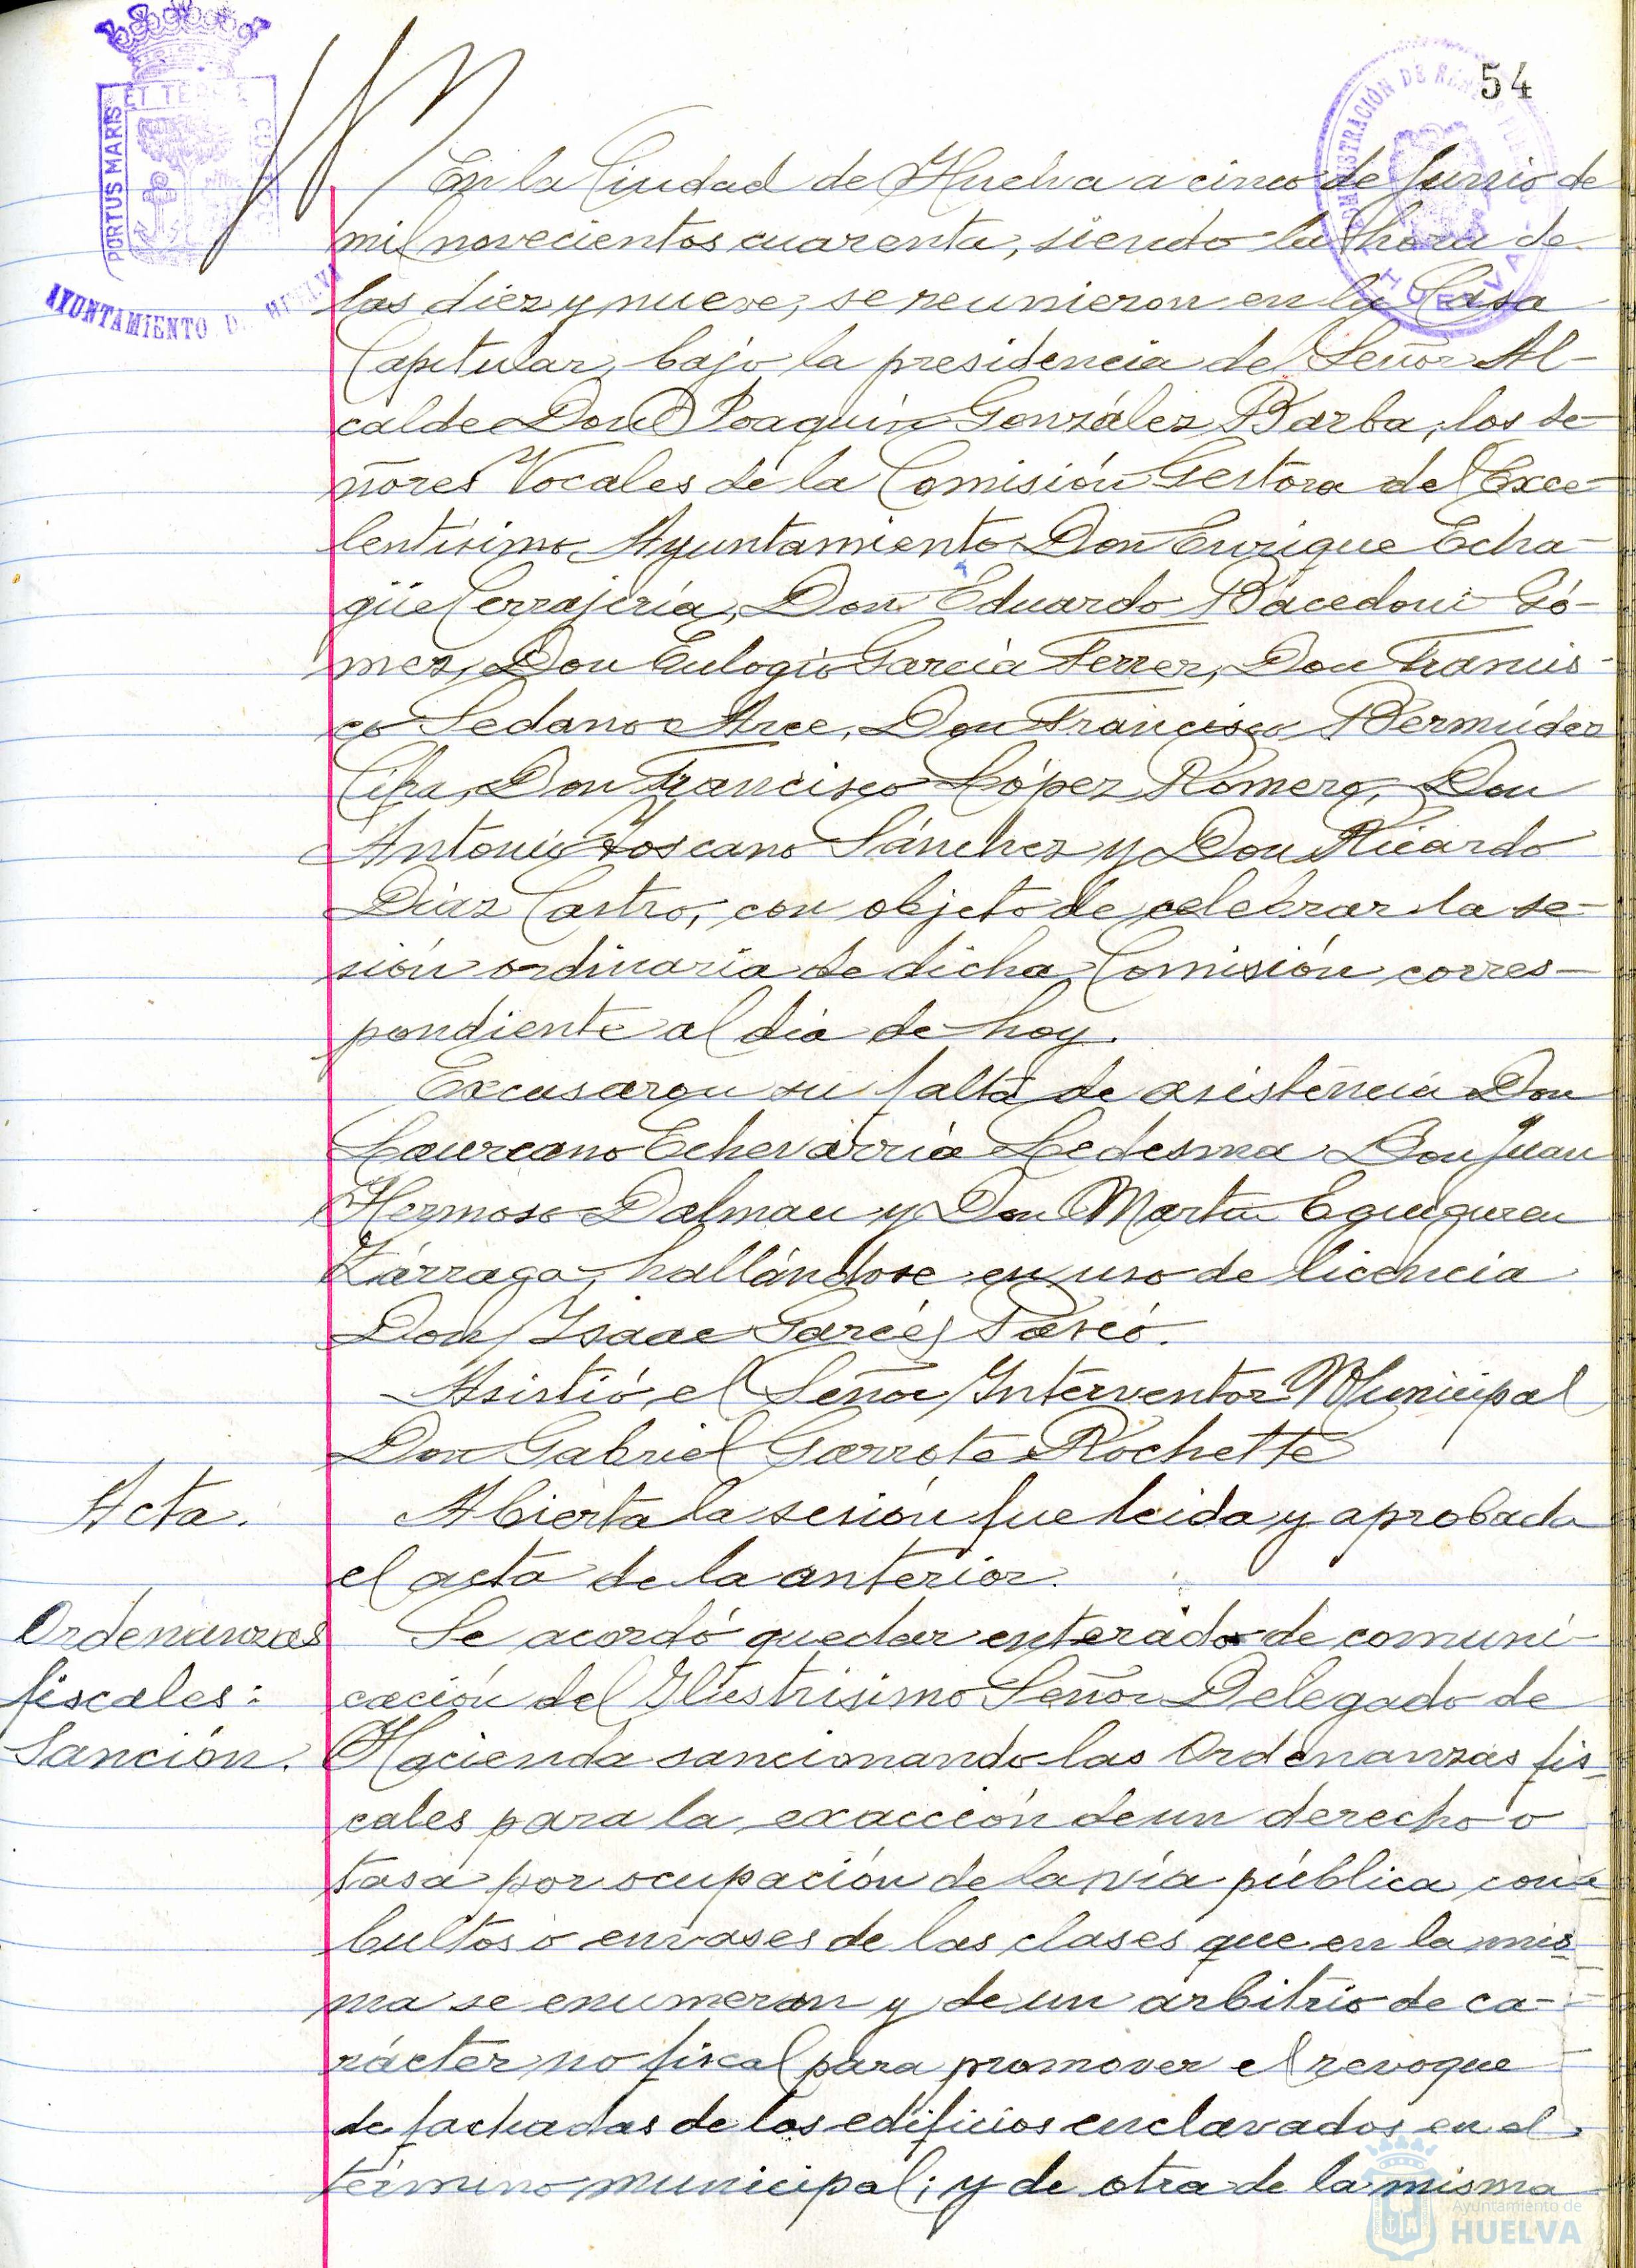 54
PORTUS MARIS
ET TERRE
CUSTO
AYUNTAMIENTO DE HUELVA
ADMINISTRACIÓN DE
HUELVA
En la Ciudad de Huelva a cinco de Junio de
mil novecientos cuarenta, siendo la hora de
las diez y nueve, se reunieron en la Casa
Capitular, bajo la presidencia del Señor Al-
calde Don Joaquín González Barba, los se-
ñores Vocales de la Comisión Gestora del Exce-
lentísimo Ayuntamiento Don Enrique Echa-
güe Cerrajería, Don Eduardo Bacedoni Gó-
mez, Don Eulogio García Ferrer, Don Francis-
co Sedano Arce, Don Francisco Bermúdez
Don Francisco López Romero, Don
Antonio Toscano Sánchez y Don Ricardo
Díaz Castro, con objeto de celebrar la se-
sión ordinaria de dicha Comisión corres-
pondiente al día de hoy.
Excusaron su falta de asistencia Don
Laureano Echevarría Ledesma, Don Juan
Hermoso Dalmau y Don Martín Eguiguren
Zárraga, hallándose en uso de licencia
Don Isaac Garcés
Asistió el Señor Interventor Municipal
Don Gabriel Garrote Rochette
Acta.
Abierta la sesión fue leida y aprobada
el acta de la anterior.
Ordenanzas
fiscales:
Sanción.
Se acordó quedar enterado de comuni-
cación del Ilustrisimo Señor Delegado de
Hacienda sancionando las Ordenanzas fis-
cales para la exacción de un derecho o
tasa por ocupación de la vía pública con
bultos o envases de las clases que en la mis-
ma se enumeran y de un arbitrio de ca-
rácter no fiscal para promover el revoque
de fachadas de los edificios enclavados en el
término municipal; y de otra de la misma
Ayuntamiento de
HUELVA